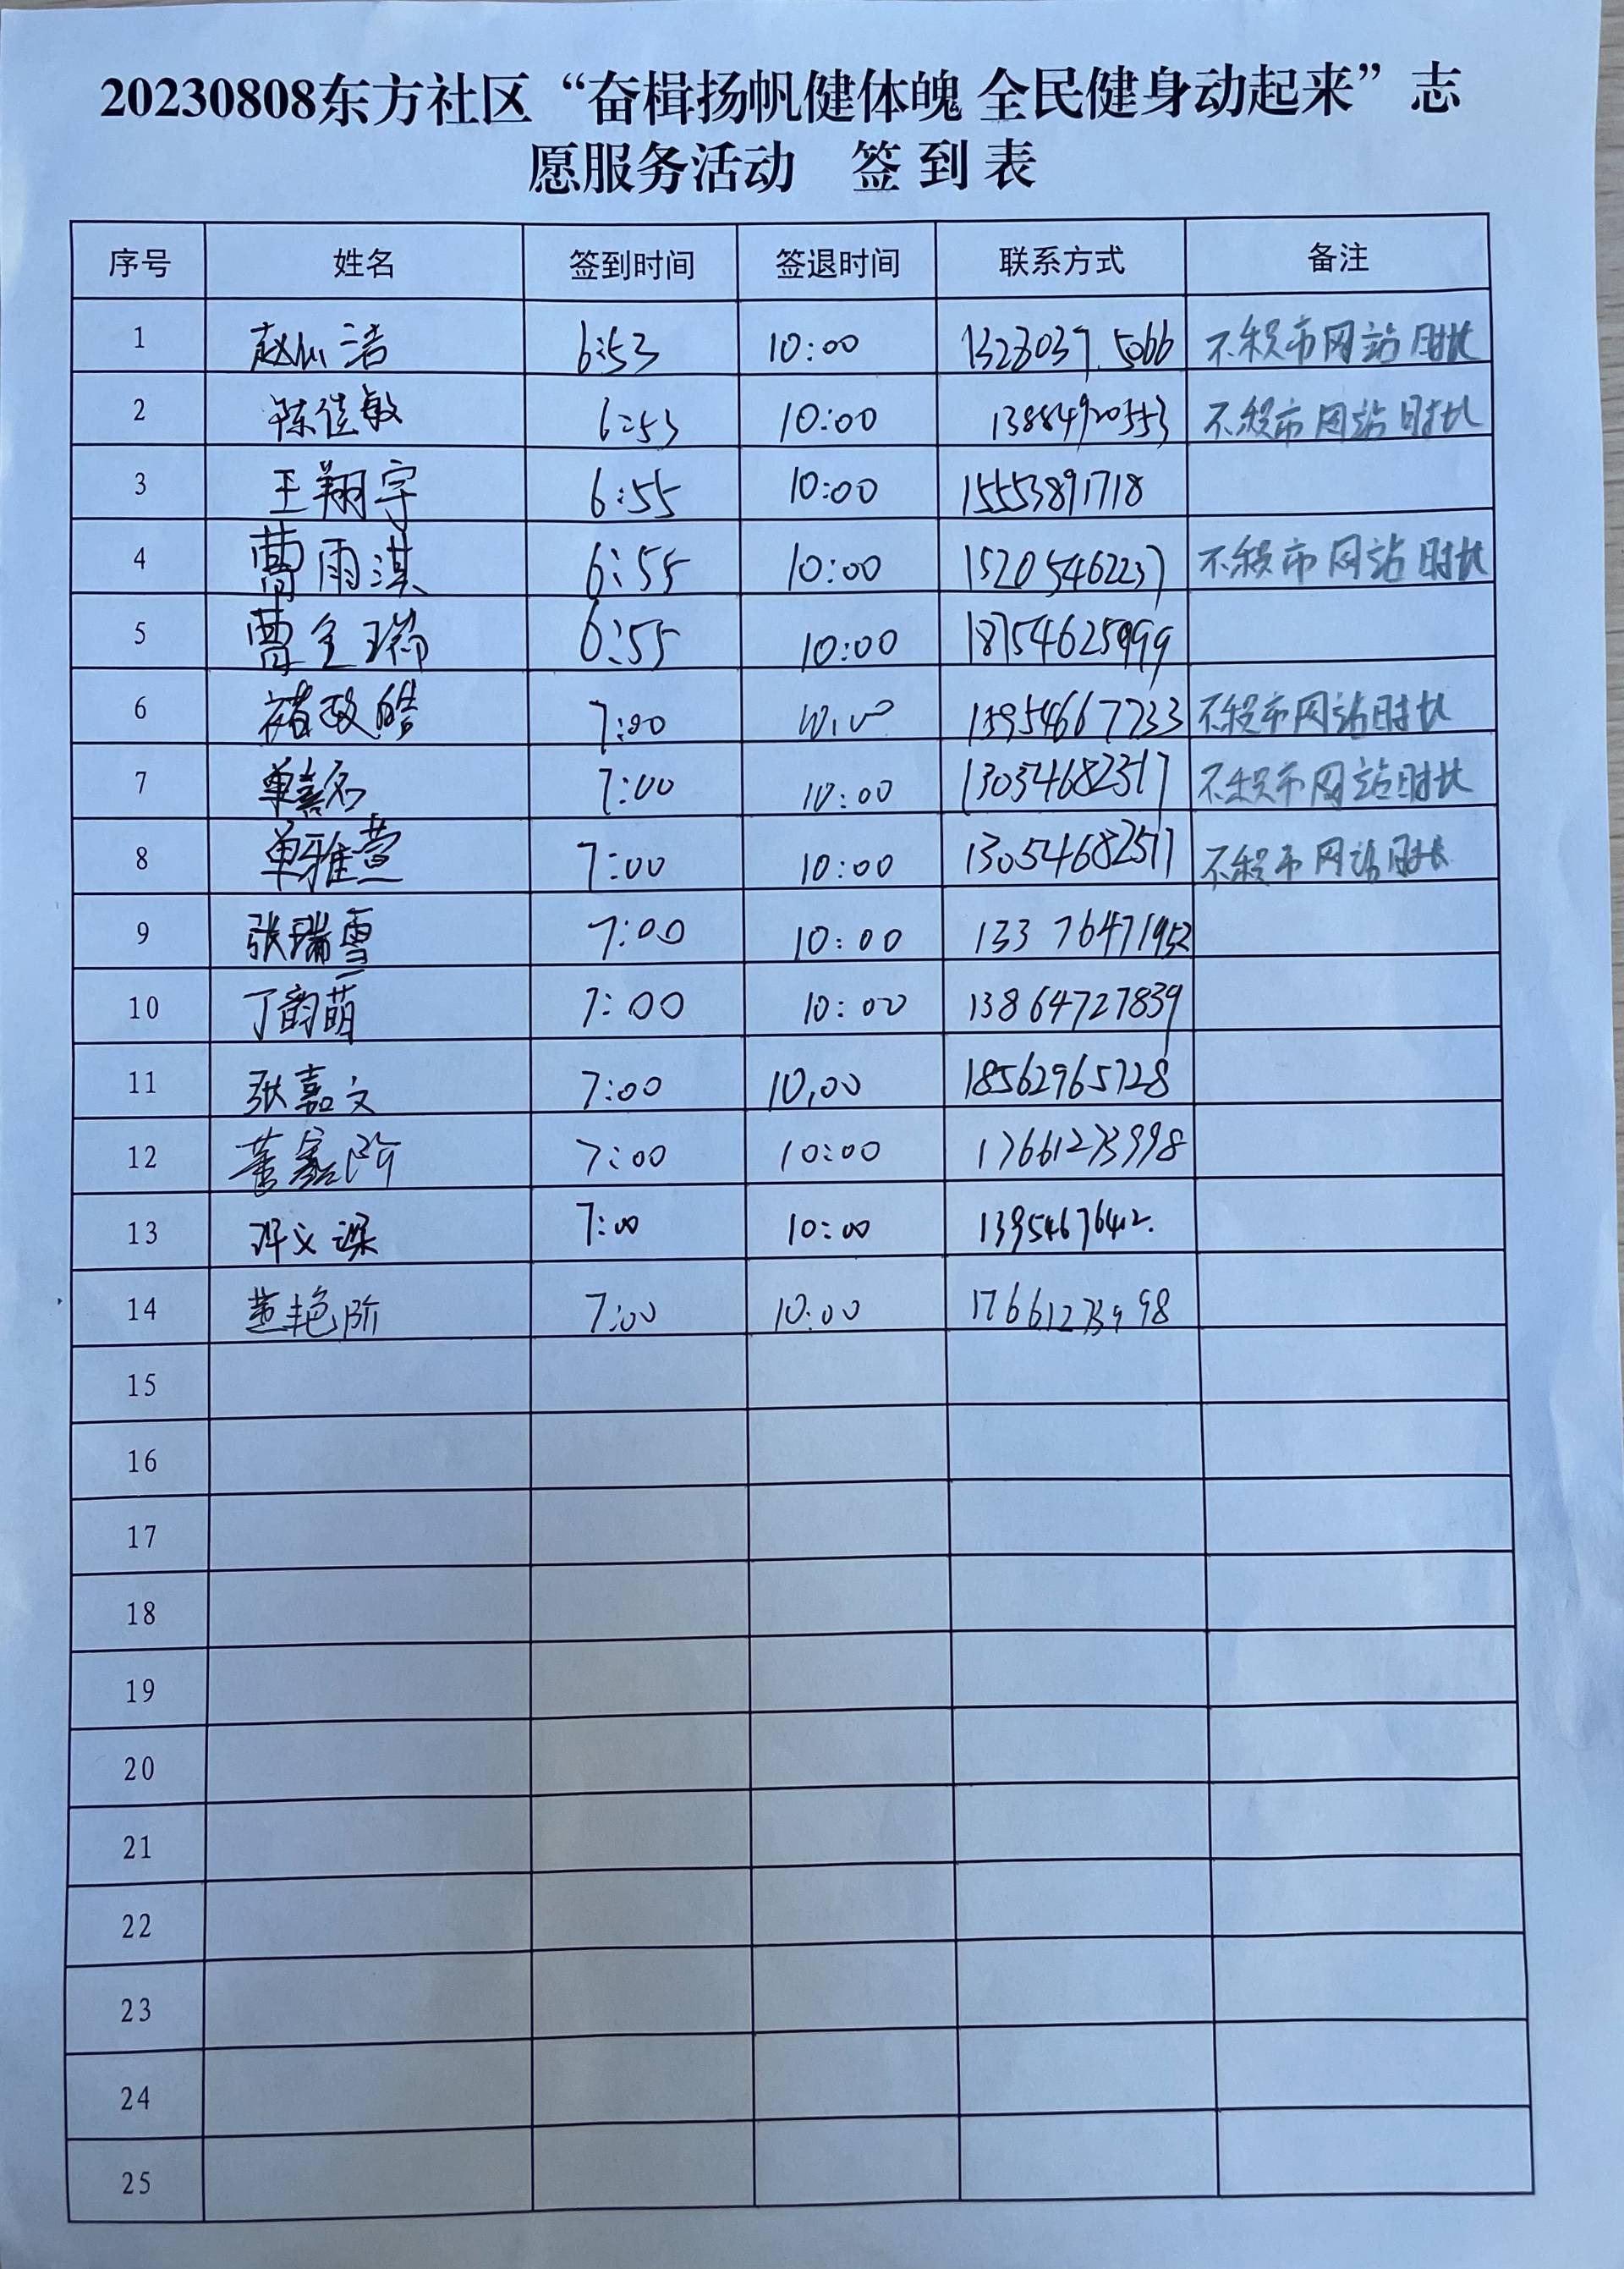 20230808东方社区“奋楫扬帆健体魄 全民健身动起来”志
愿服务活动 签到表
序号 姓名 签到时间 签退时间 联系方式 备注
1 6:53 10:00 不积市网站时长
2 陈佳敏 6:53 10:00 13884920553 不积市网站时长
3 王翔宇 6:55 10:00 15553891718
4 曹雨淇 6:55 10:00 15205462237 不积市网站时长
5 曹全瑞 6:55 10:00
6 褚政皓 7:00 10:00 13954667733 不积市网站时长
7 7:00 10:00 不积市网站时长
8 单雅萱 7:00 10:00 不积市网站时长
9 张瑞雪 7:00 10:00 13376471952
10 丁韵萌 7:00 10:00 13864727839
11 张嘉文 7:00 10:00 18562965728
12 7:00 10:00 17661273998
13 7:00 10:00
14 董艳阶 7:00 10:00 17661273998
15
16
17
18
19
20
21
22
23
24
25